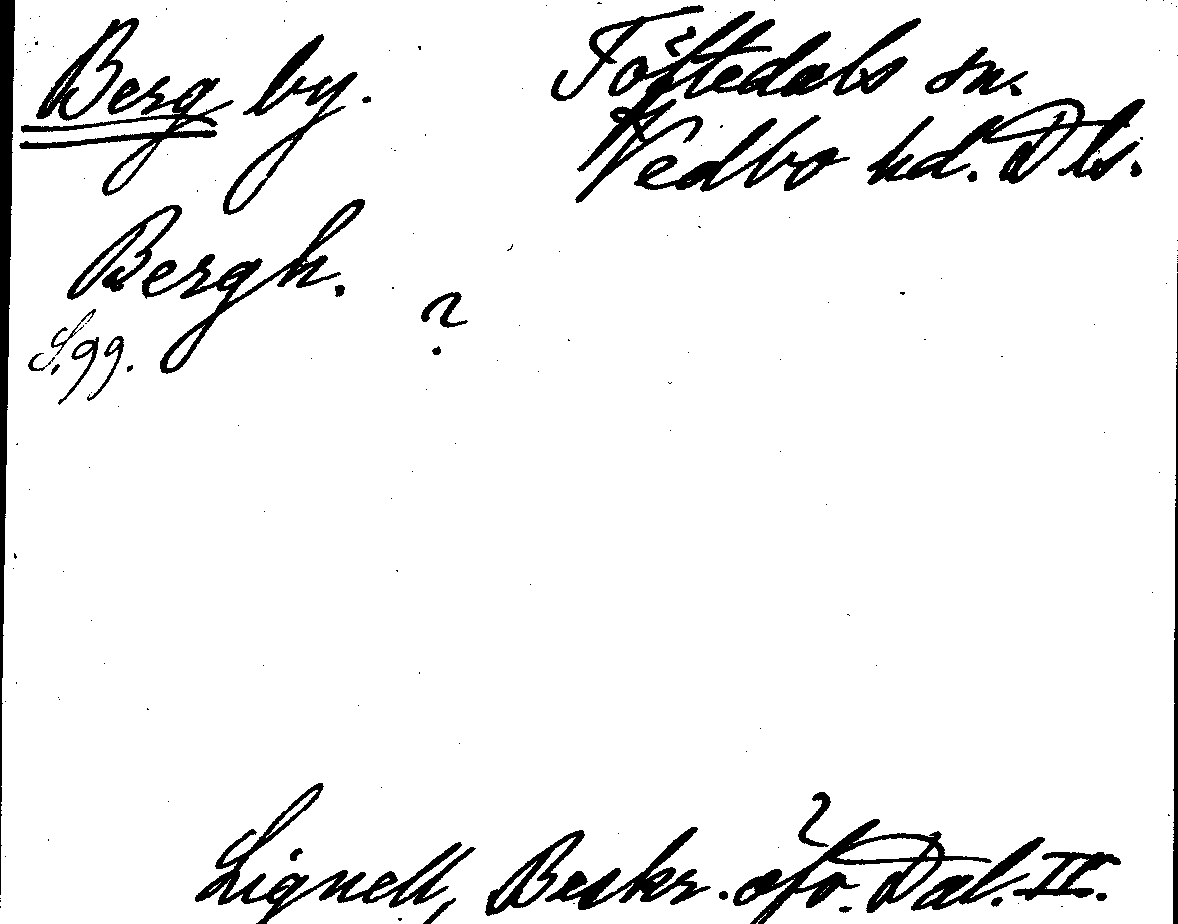 Berg by.
Töftedals sn.
Vedbo hd. Dls.
Bergh.
?
S. 99.
Lignell, Beskr. öfv. Dal. II.